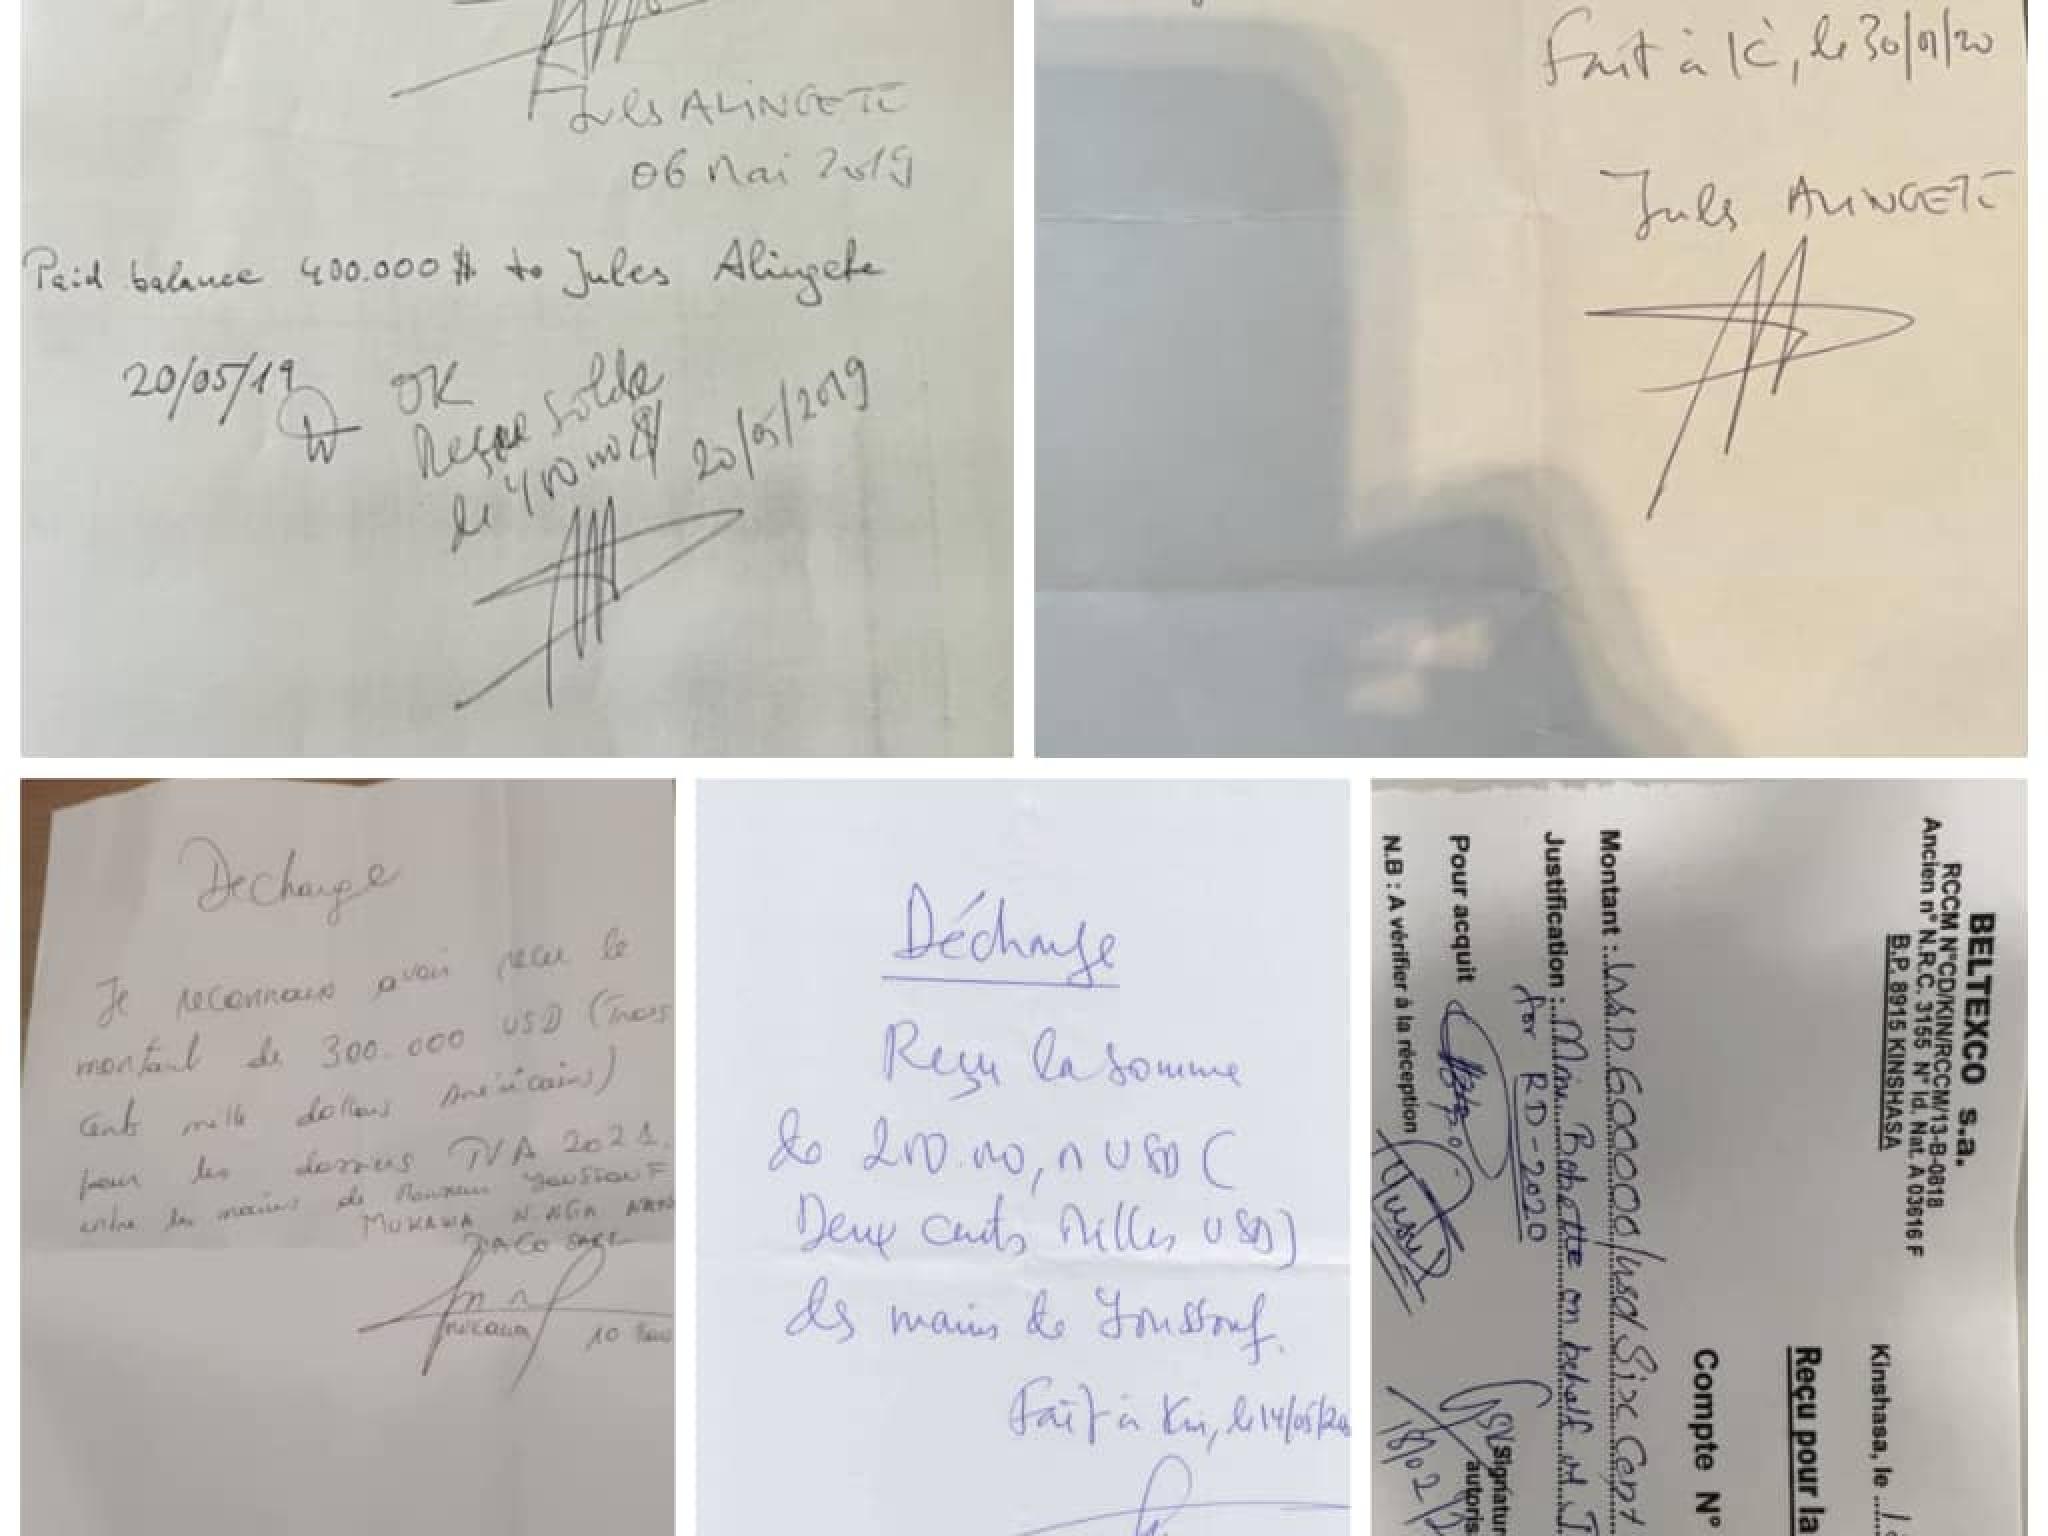 Jules ALINGETE
06 Mai 2019
Paid balance 400.000 $ to Jules Alingete
20/05/19
OK
Reçu solde
de 400 000 $
20/05/2019
Fait à K, le 30/01/20
Jules ALINGETE
Decharge
Je reconnais avoir recu le
montant de 300.000 USD (Trois
Cents mille dollars Américains)
pour les dossiers TVA 2021.
entre les mains de Monsieur YOUSSOUF
MUKAWA
SARL
MUKAWA
10
Décharge
Reçu la somme
de 200.000, USD (
Deux cents Milles USD)
des mains de Youssouf.
Fait à Kin, le 14/05/20
BELTEXCO s.a.
RCCM N°CD/KIN/RCCM/13-B-0818
Ancien n° N.R.C. 3155 N° Id. Nat. A 03616 F
B.P. 8915 KINSHASA
Kinshasa, le
Reçu pour la
Compte N°
Montant : 600000/usd Six Cent
Justification : on behalf of J.
for RD-2020
Pour acquit
Signatur
autoris
N.B : A vérifier à la réception